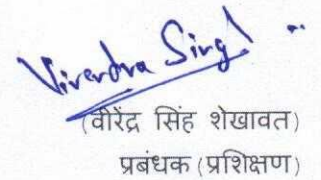 Virendra Singh
(वीरेंद्र सिंह शेखावत)
प्रबंधक (प्रशिक्षण)